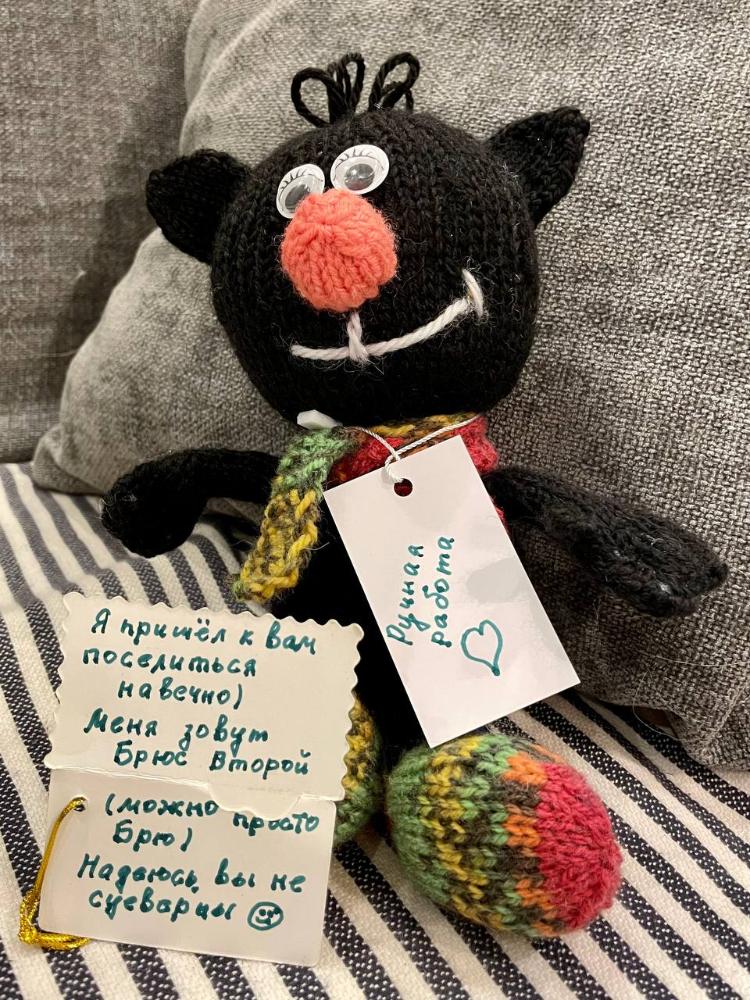 Ручная
работа
Я пришёл к вам
поселиться
навечно)
Меня зовут
Брюс Второй
(можно просто
Брю)
Надеюсь, вы не
суеварны